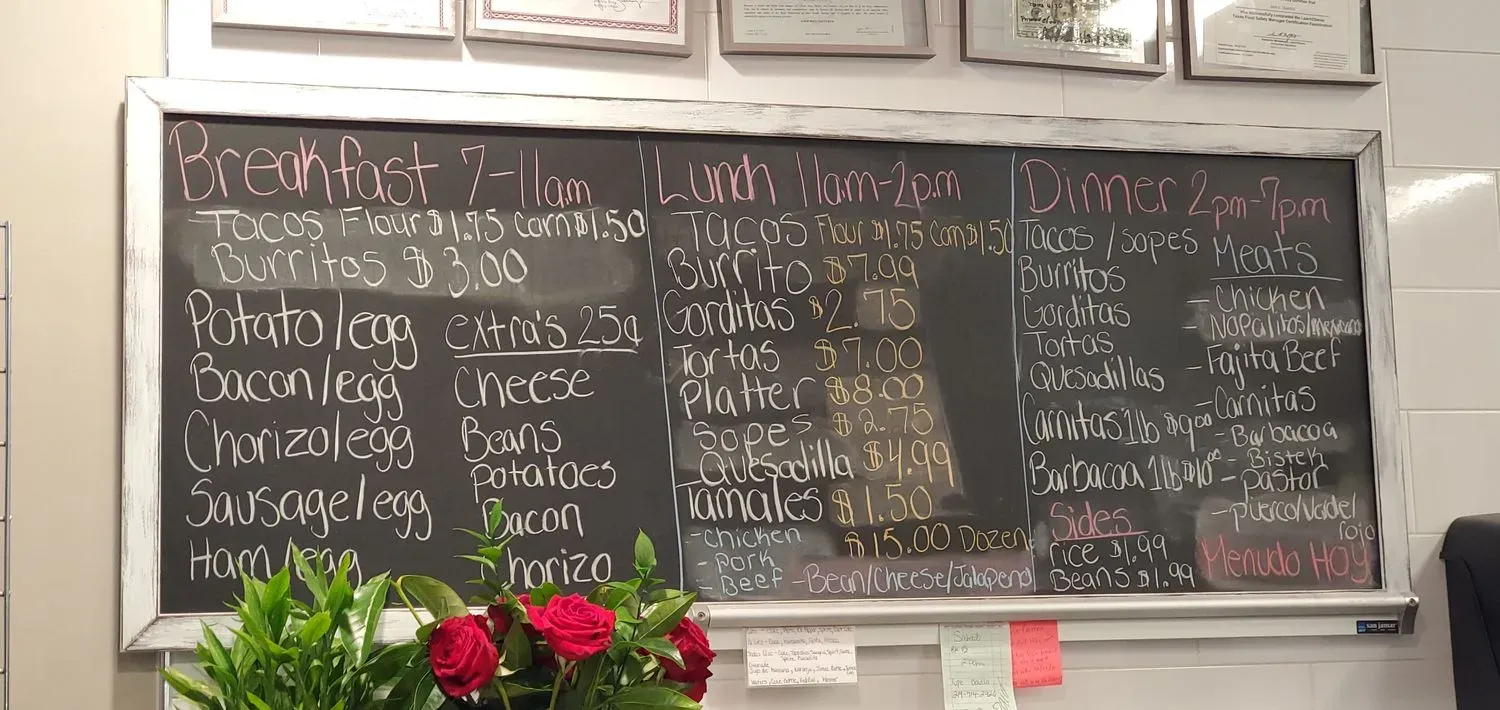 Breakfast 7-11am
Tacos Flour $1.75 Corn $1.50
Burritos $3.00
Potato/egg
Bacon/egg
Chorizo/egg
Sausage/egg
Ham/egg
extra's 25¢
Cheese
Beans
Potatoes
Bacon
Chorizo
Lunch 11am-2p.m
Tacos Flour $1.75 Corn $1.50
Burrito $7.99
Gorditas $2.75
Tortas $7.00
Platter $8.00
Sopes $2.75
Quesadilla $4.99
Tamales $1.50
-Chicken $15.00 Dozen
- Pork
- Beef -Bean/Cheese/Jalapeno
Dinner 2pm-7p.m
Tacos /sopes
Burritos
Gorditas
Tortas
Quesadillas
Carnitas 1lb $9.00
Barbacoa 1lb $10.00
Sides
rice $1.99
Beans $1.99
Meats
- Chicken
- Nopalitos/mexicano
- Fajita Beef
- Carnitas
- Barbacoa
- Bistek
- pastor
- puerco/verde/
rojo
Menudo Hoy